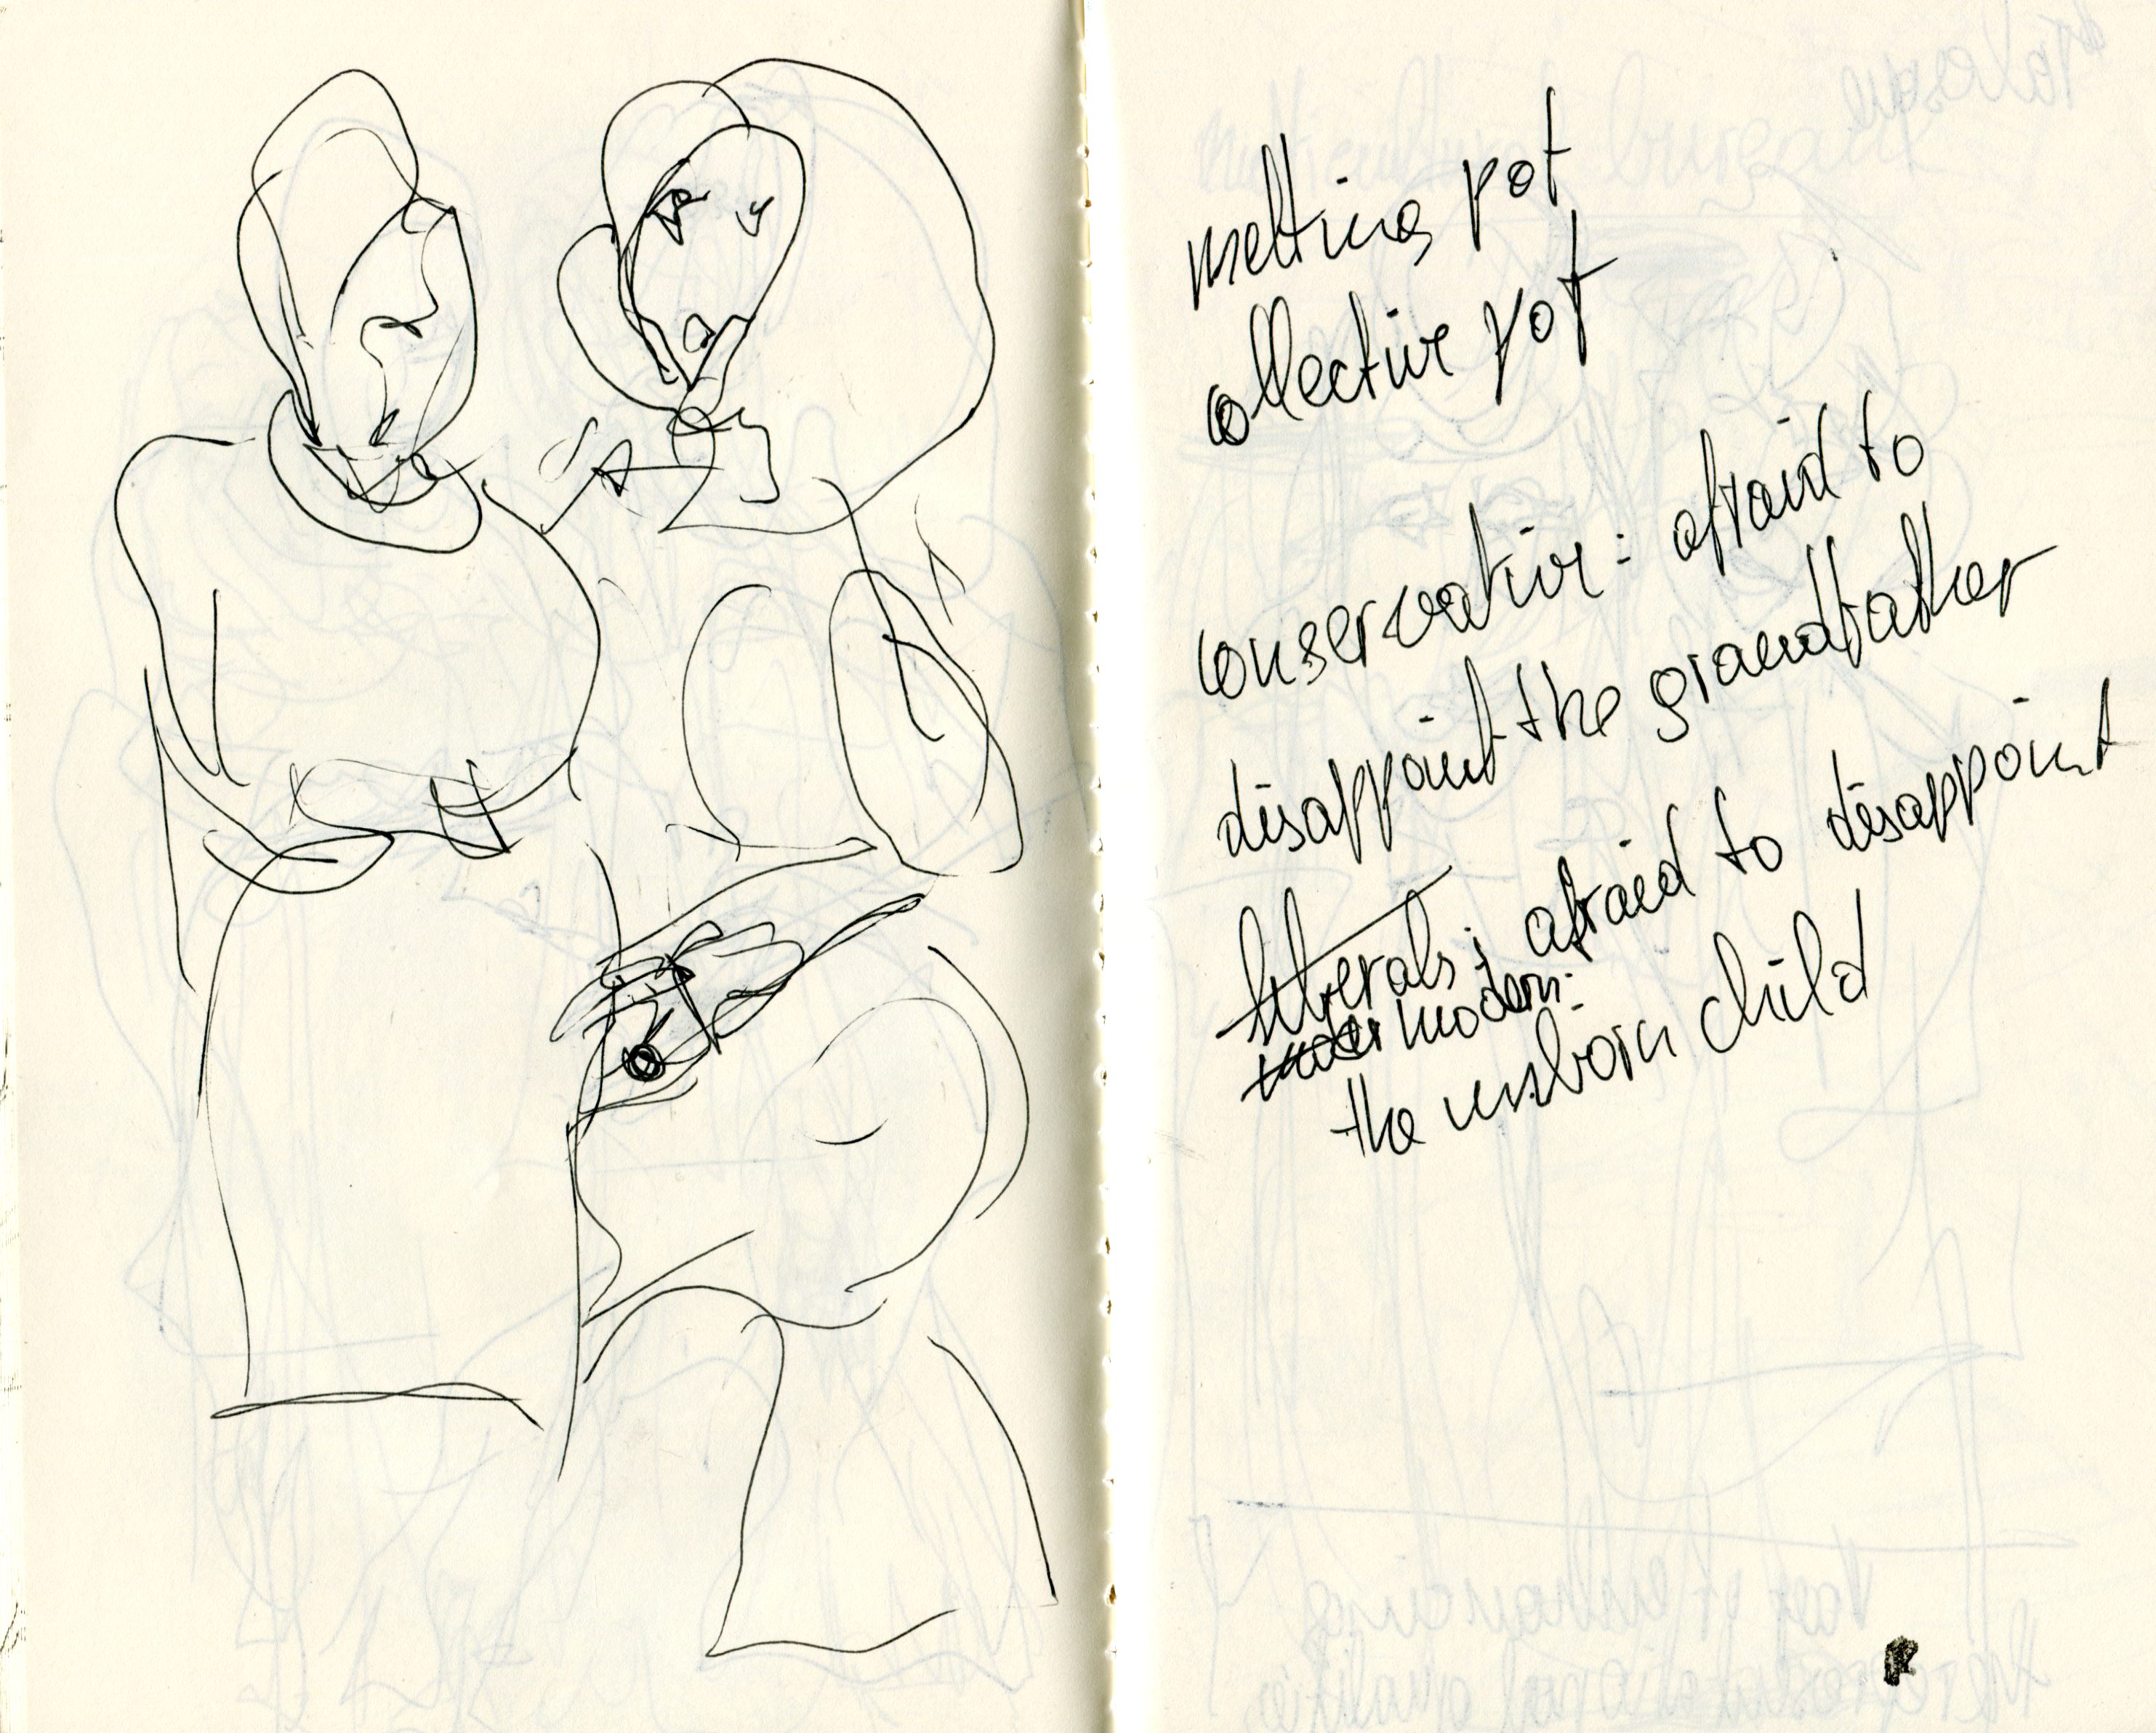 melting pot
collective pot
conservative: afraid to
disappoint the grandfather
liberals: afraid to disappoint
modern:
the unborn child